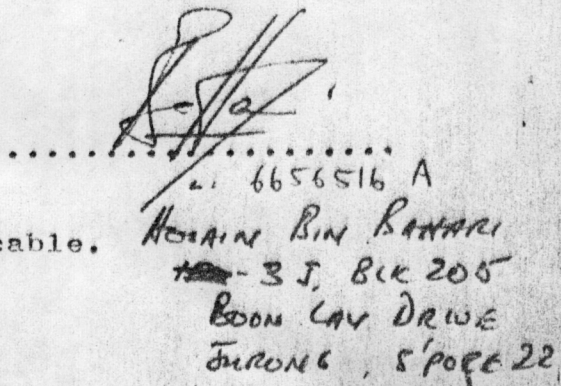 6656516 A
cable.
HUSAIN BIN BAHARI
- 35, BLK 205
BOON LAY DRIVE
JURONG, S'PORE 22